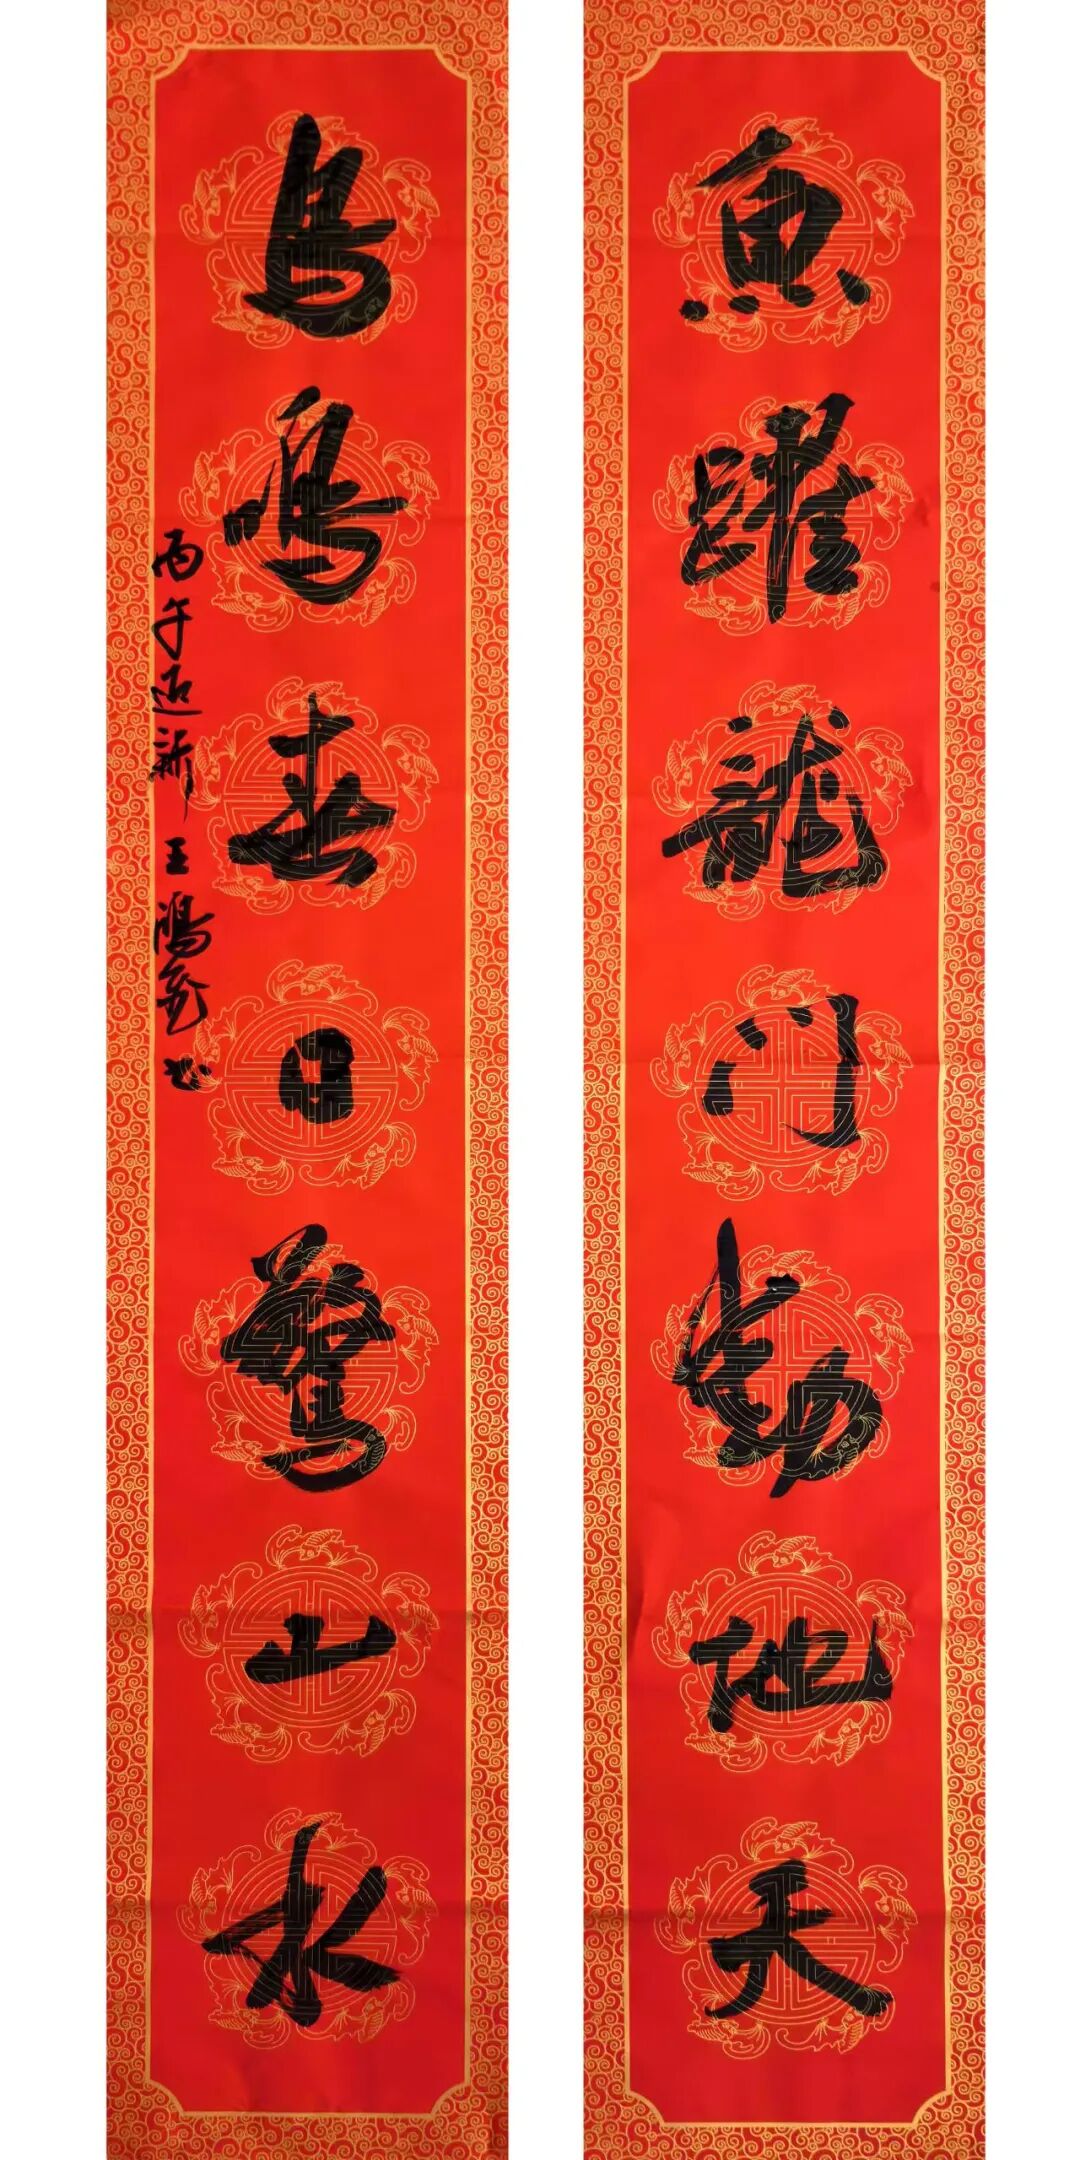 魚躍龍门動地天
鳥鳴春日驚山水
丙午迎新 王鴻书